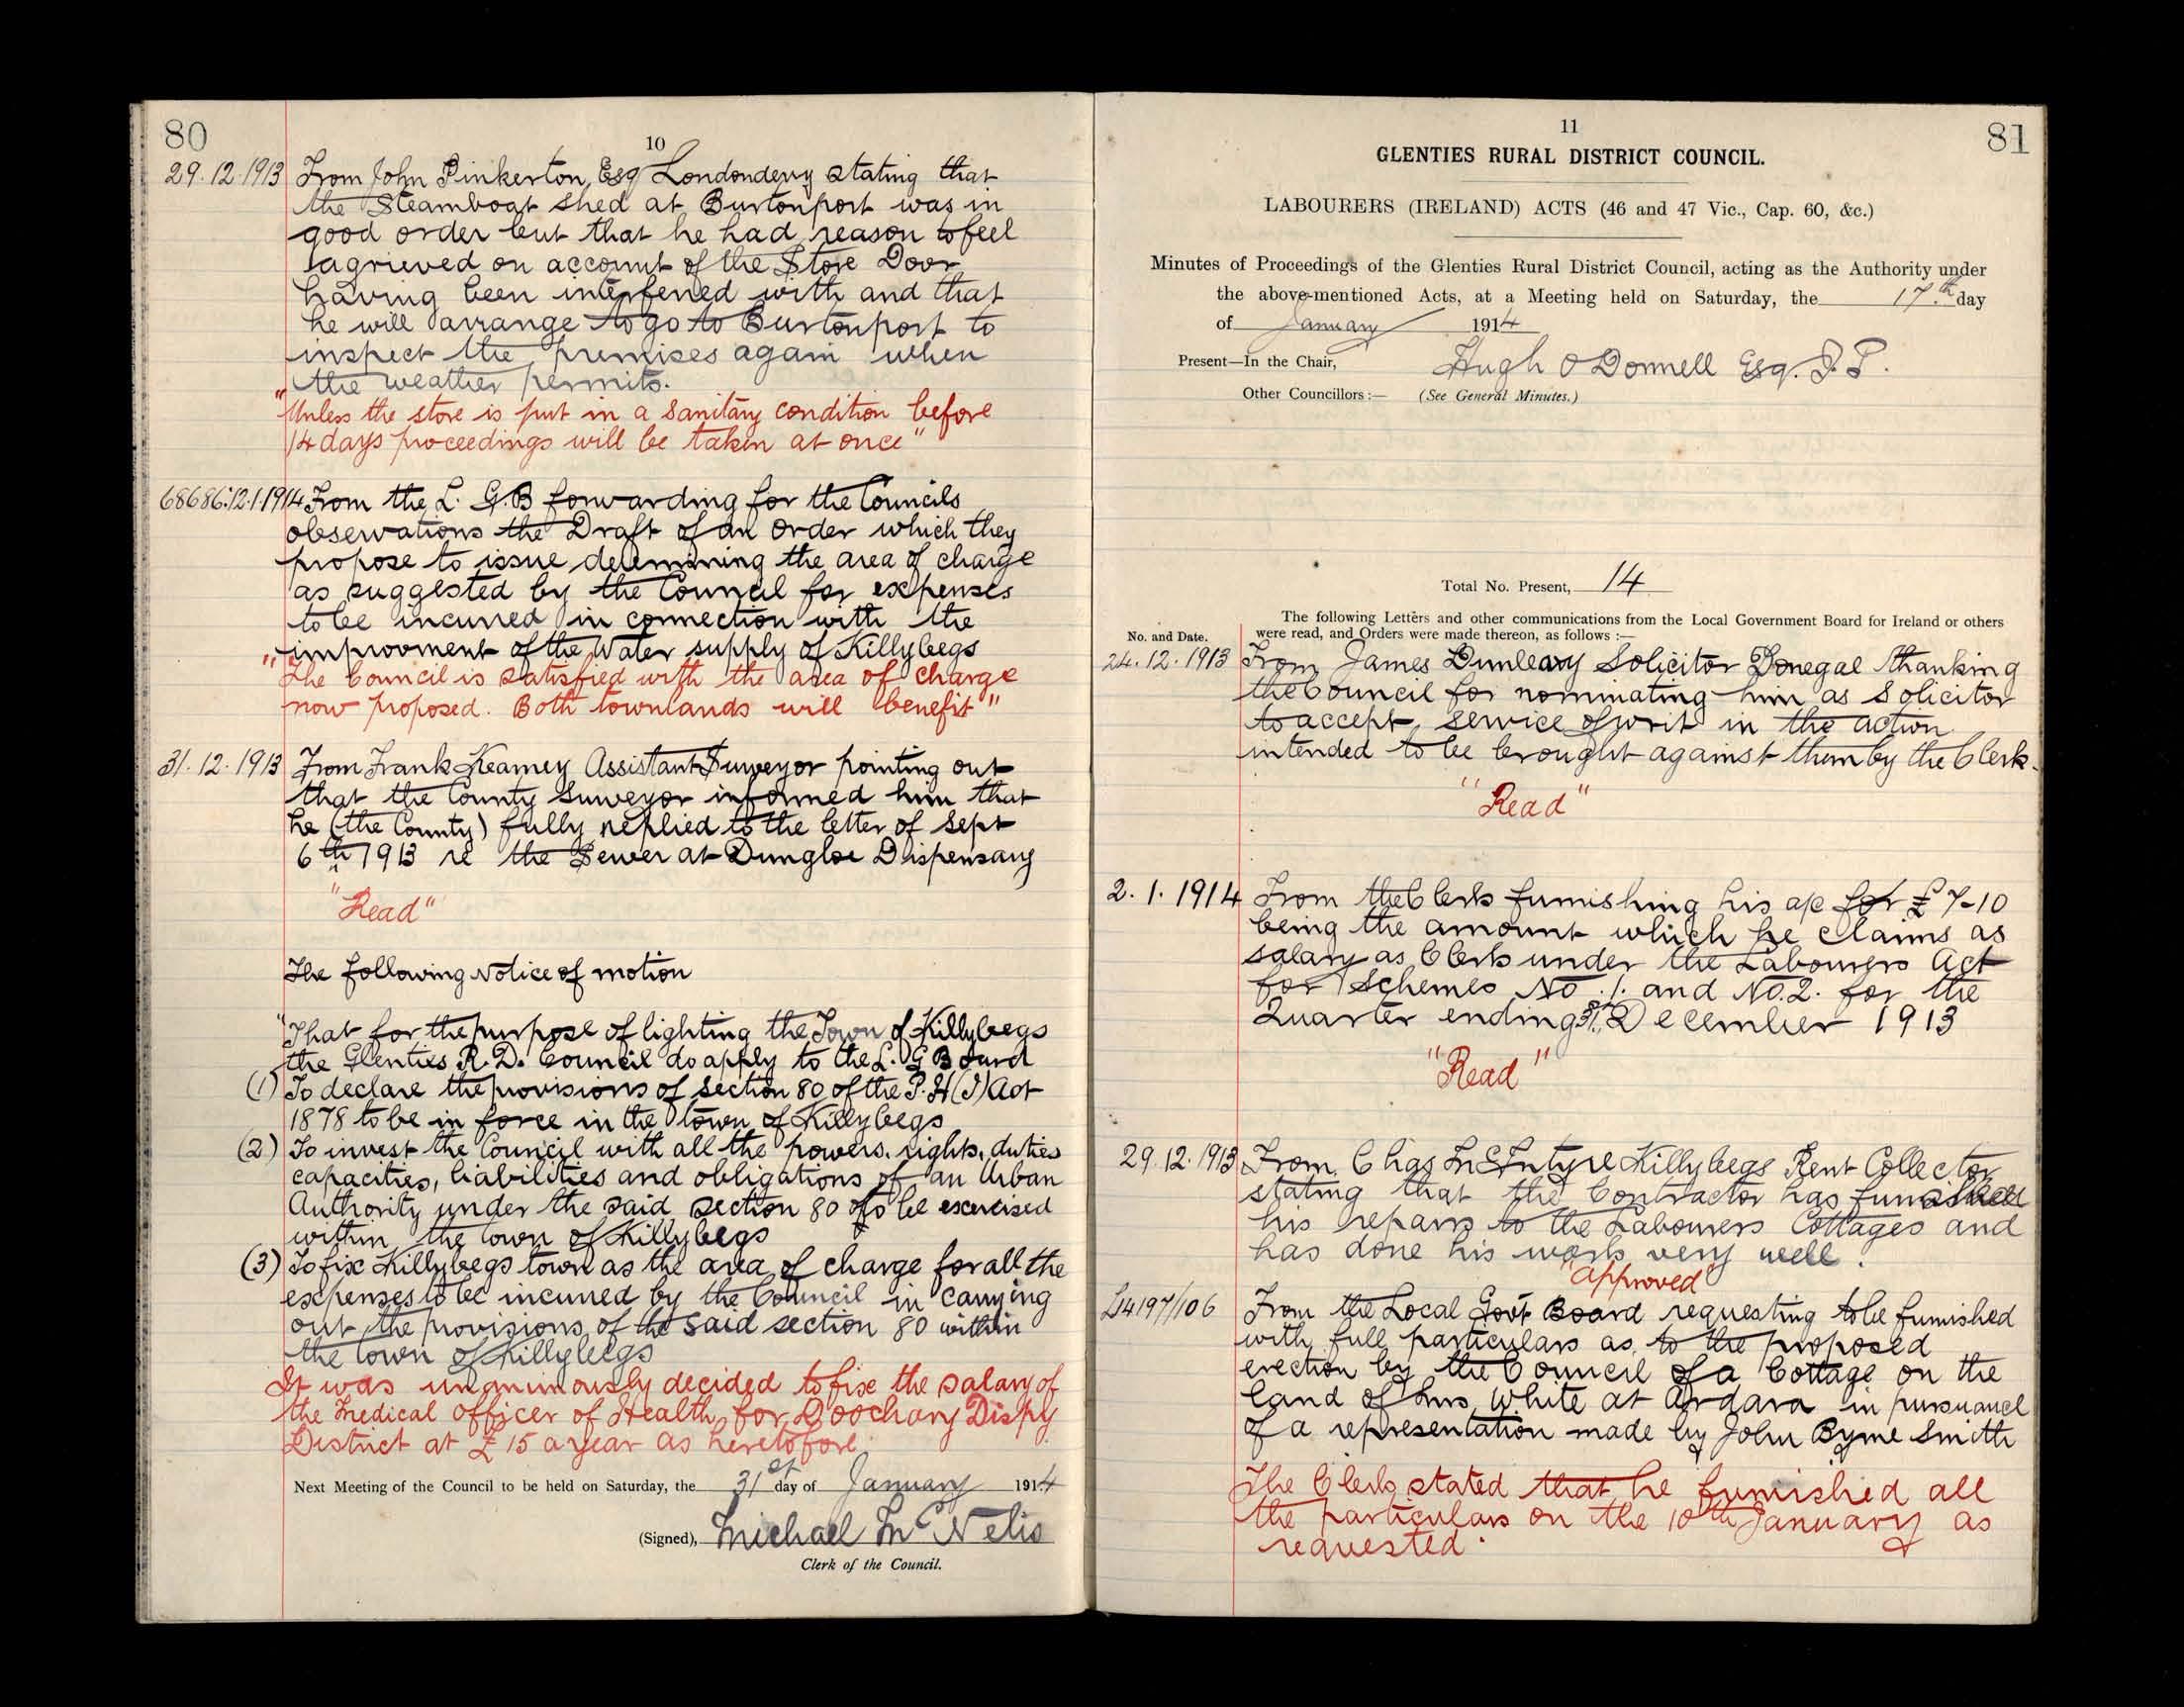 80
10
29.12.1913 From John Pinkerton, Esq Londonderry stating that
the Steamboat Shed at Burtonport was in
good order but that he had reason to feel
agrieved on account of the Store Door
having been interferred with and that
he will arrange to go to Burtonport to
inspect the premises again when
the weather permits.
"Unless the store is put in a sanitary condition before
14 days proceedings will be taken at once"
68686:12.1.1914 From the L. G. B forwarding for the Councils
observations the Draft of an Order which they
propose to issue determining the area of charge
as suggested by the Council for expenses
to be incurred in connection with the
improvment of the Water supply of Killybegs
"The Council is satisfied with the area of charge
now proposed. Both townlands will benefit"
31.12.1913 From Frank Kearney Assistant Surveyor pointing out
that the County Surveyor informed him that
he (the County) fully replied to the letter of Sept
6th 1913 re the Sewer at Dungloe Dispensary
"Read"
The following Notice of motion
"That for the purpose of lighting the Town of Killybegs
the Glenties R. D. Council do apply to the L. G Board
(1) To declare the provisions of section 80 of the P. H (I) Act
1878 to be in force in the town of Killybegs
(2) To invest the Council with all the powers, rights, duties
capacities, liabilities and obligations of an Urban
Authority under the said section 80 to be exercised
within the town of Killybegs
(3) To fix Killybegs town as the area of charge for all the
expenses to be incurred by the Council in carrying
out the provisions of the said section 80 within
the town of Killybegs
It was unanimously decided to fix the salary of
the Medical Officer of Health for Doochary Dispy
District at £15 a year as heretofore.
Next Meeting of the Council to be held on Saturday, the 31st day of January 1914
(Signed), Michael McNelis
Clerk of the Council.
11
81
GLENTIES RURAL DISTRICT COUNCIL.
LABOURERS (IRELAND) ACTS (46 and 47 Vic., Cap. 60, &c.)
Minutes of Proceedings of the Glenties Rural District Council, acting as the Authority under
the above-mentioned Acts, at a Meeting held on Saturday, the 17th day
of January 1914
Present—In the Chair, Hugh O Donnell Esq. J. P.
Other Councillors:— (See General Minutes.)
Total No. Present, 14
The following Letters and other communications from the Local Government Board for Ireland or others
No. and Date. were read, and Orders were made thereon, as follows :—
24.12.1913 From James Dunleavy Solicitor Donegal thanking
the Council for nominating him as Solicitor
to accept service of writ in the action
intended to be brought against them by the Clerk.
"Read"
2.1.1914 From the Clerk furnishing his a/c for £7-10
being the amount which he claims as
salary as Clerk under the Labourers Act
for Schemes No. 1. and No. 2. for the
Quarter ending 31st December 1913
"Read"
29.12.1913 From Chas McIntyre Killybegs Rent Collector
stating that the Contractor has furnished
his repairs to the Labourers Cottages and
has done his work very well.
"approved"
L14197/106 From the Local Govt Board requesting to be furnished
with full particulars as to the proposed
erection by the Council of a Cottage on the
land of Mrs White at Ardara in pursuance
of a representation made by John Byrne Smith
The Clerk stated that he furnished all
the particulars on the 10th January as
requested.